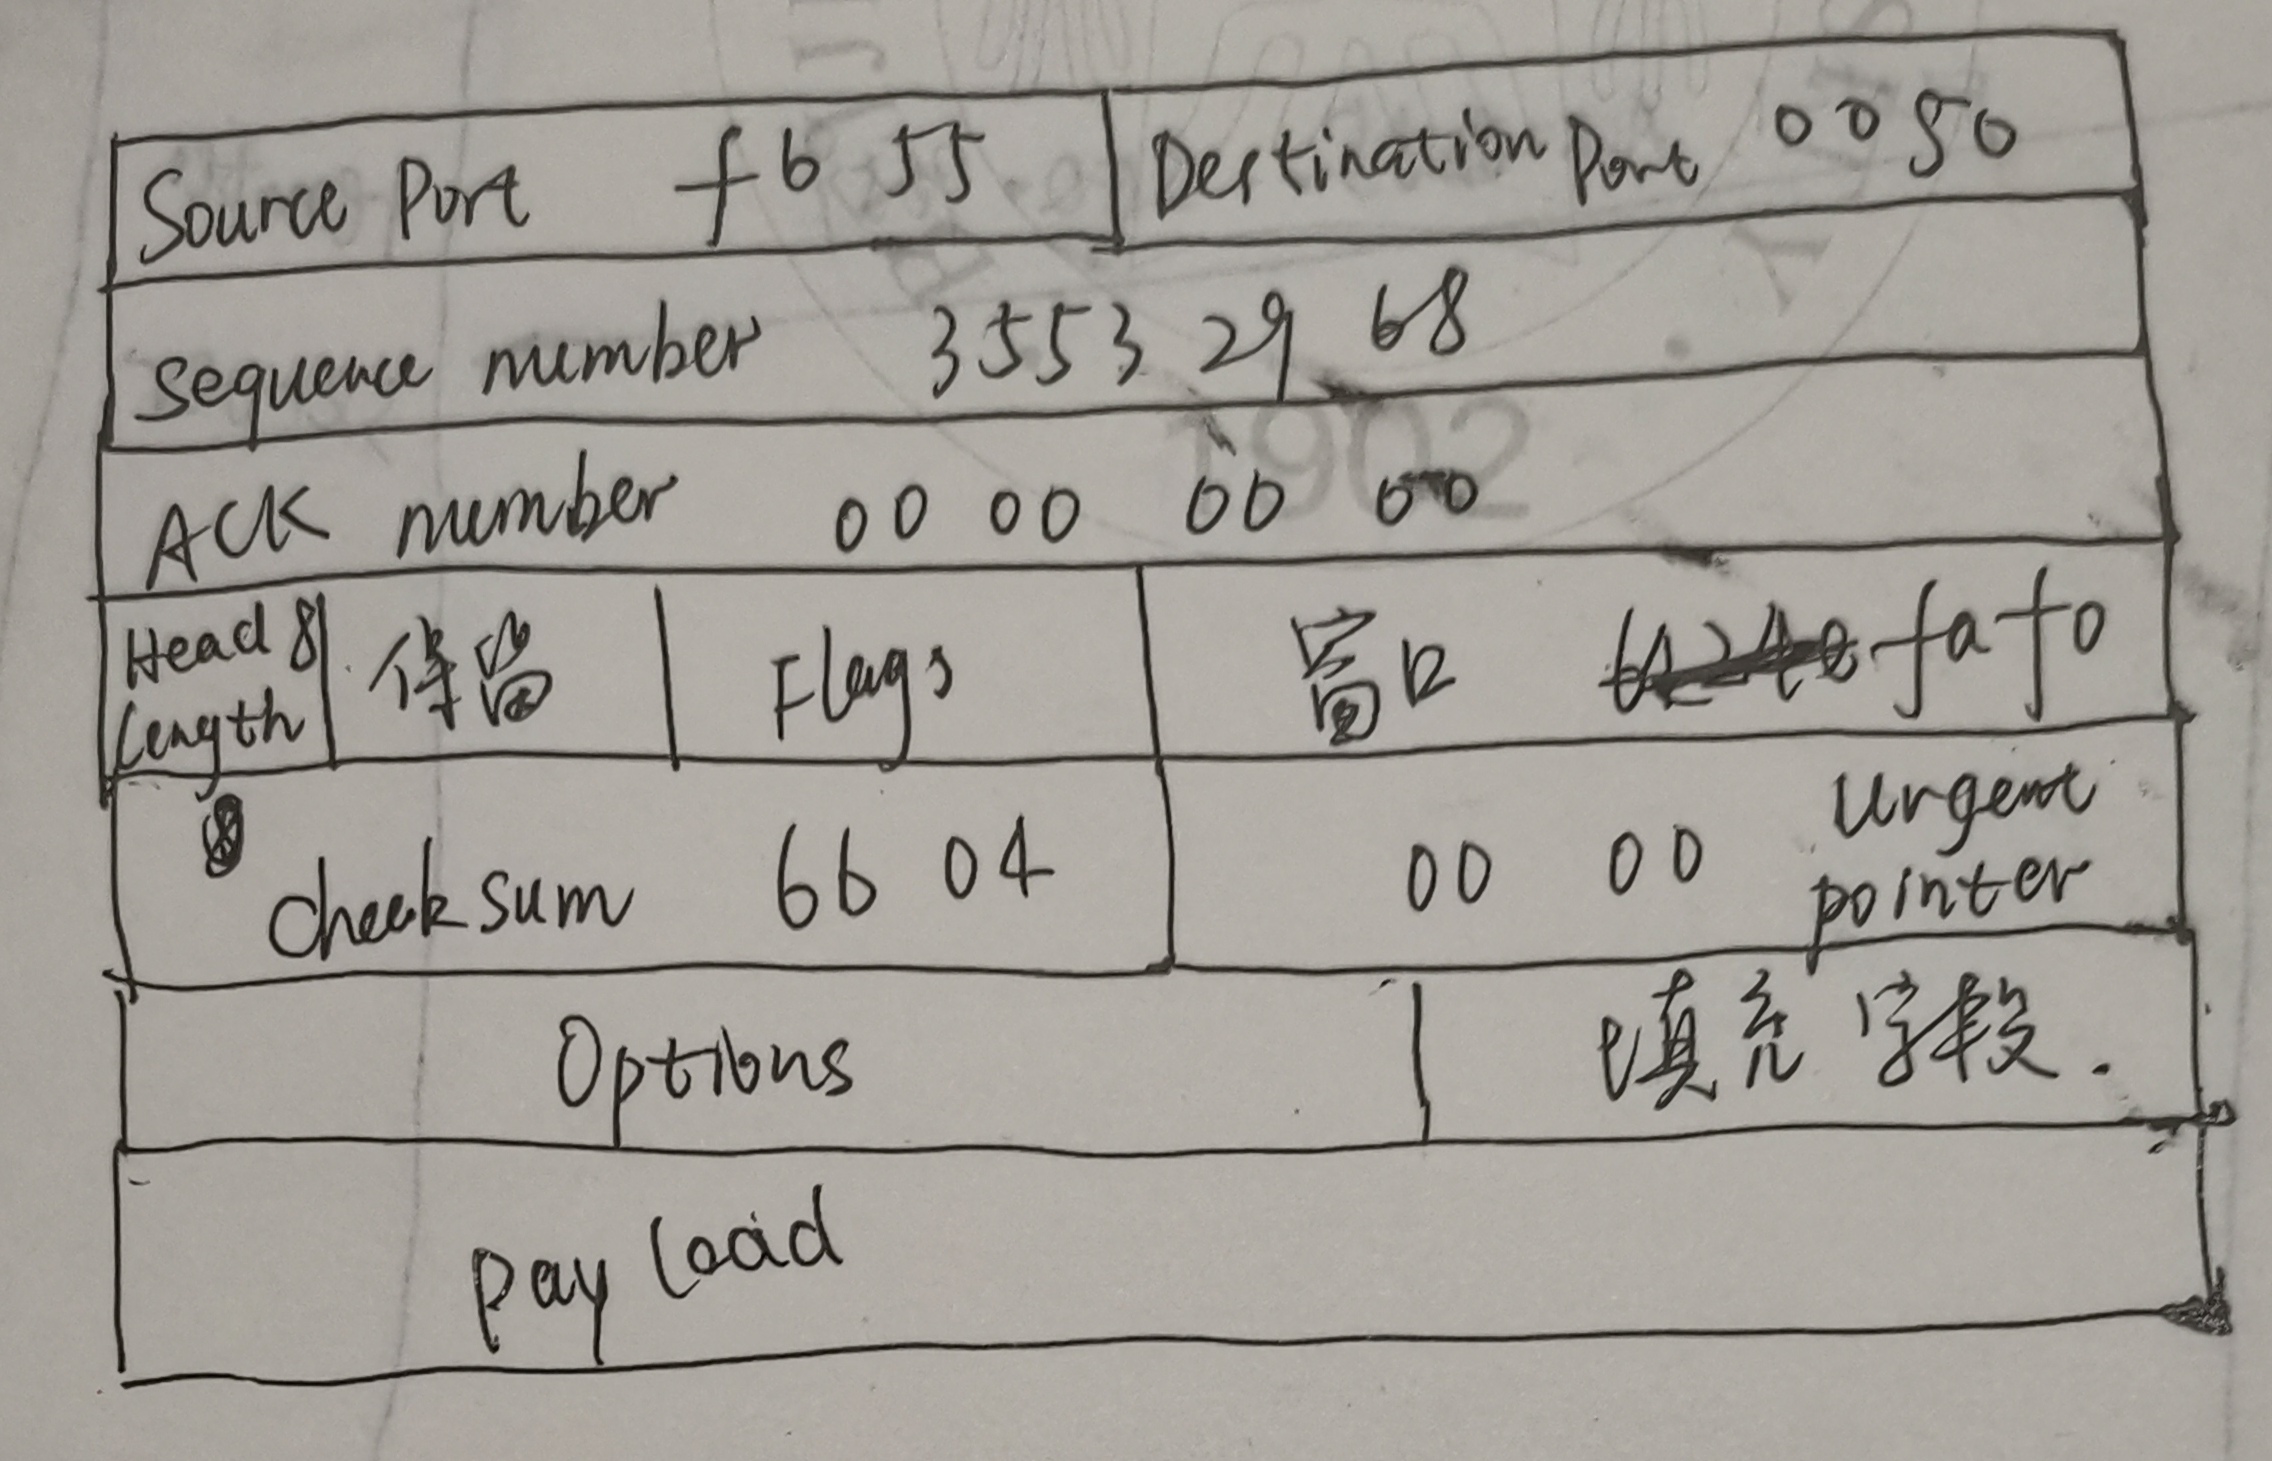 Source Port f6 55 Destination Port 0050
Sequence number 3553 29 68
ACK number 00 00 00 00
Head 8 length 保留 Flags 窗口 fafo
checksum 6b 04 00 00 Urgent pointer
Options 填充字段.
pay load
1902